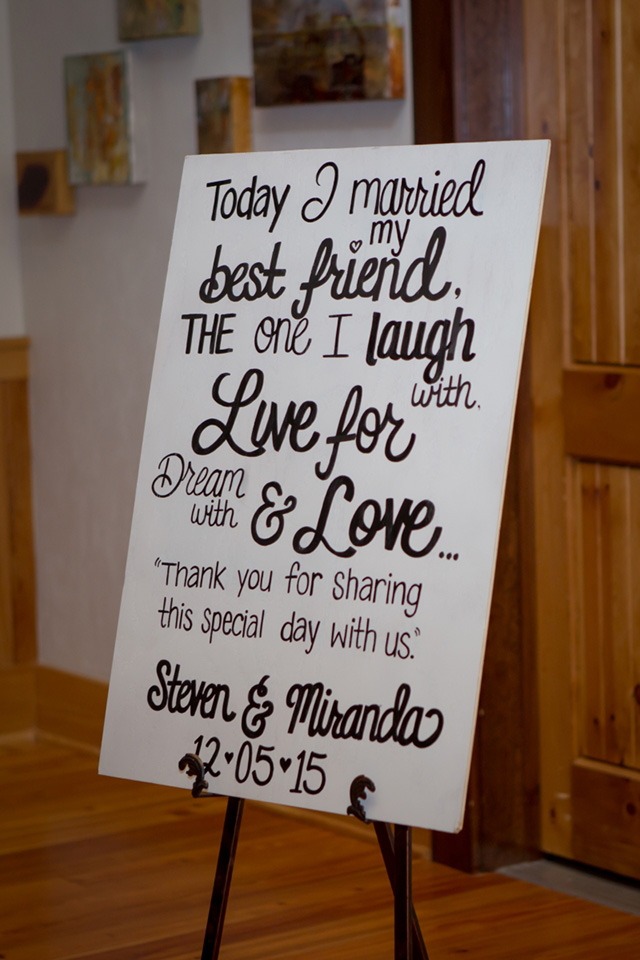 Today I married
my
best friend,
THE one I laugh
with.
Live for
Dream
with & Love...
"Thank you for sharing
this special day with us."
Steven & Miranda
12♥05♥15